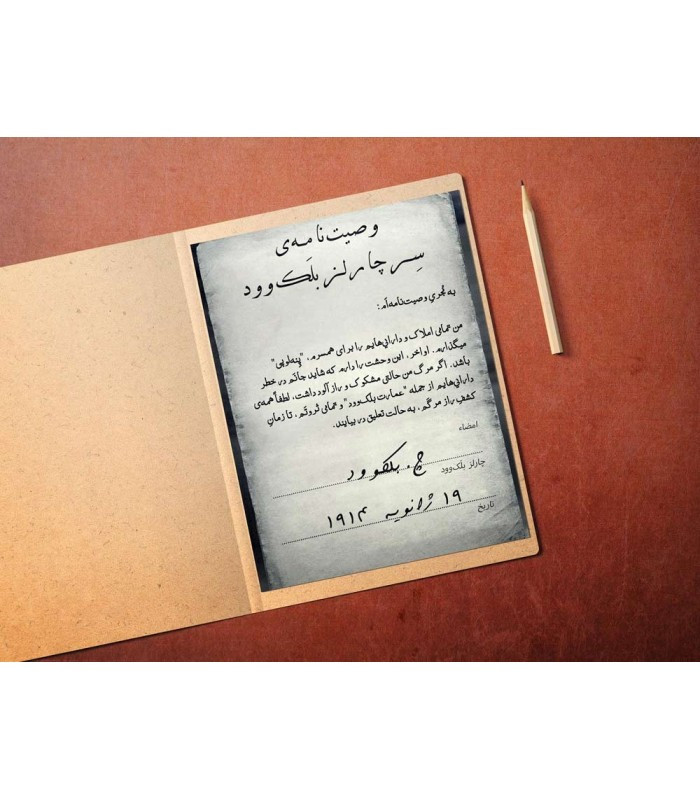 وصیت‌نامه‌ی
سِر چارلز بلَک‌وود
به مُجریِ وصیت‌نامه‌اَم:
من تمامی املاک و دارائی‌هایم را برای همسرم، "پِنه‌لوپی"
میگذارم. اواخر، این وحشت را دارم که شاید جانم در خطر
باشد. اگر مرگ من حالتی مشکوک و رازآلود داشت، لطفاً همه‌ی
دارائی‌هایم از جمله "عمارت بلک‌وود" و تمامی ثروتم، تا زمانِ
کشفِ رازِ مرگم، به حالت تعلیق در بیایند.
امضاء
چ. بلکوود
چارلز بلک‌وود
۱۹ ژانویه ۱۹۱۴
تاریخ